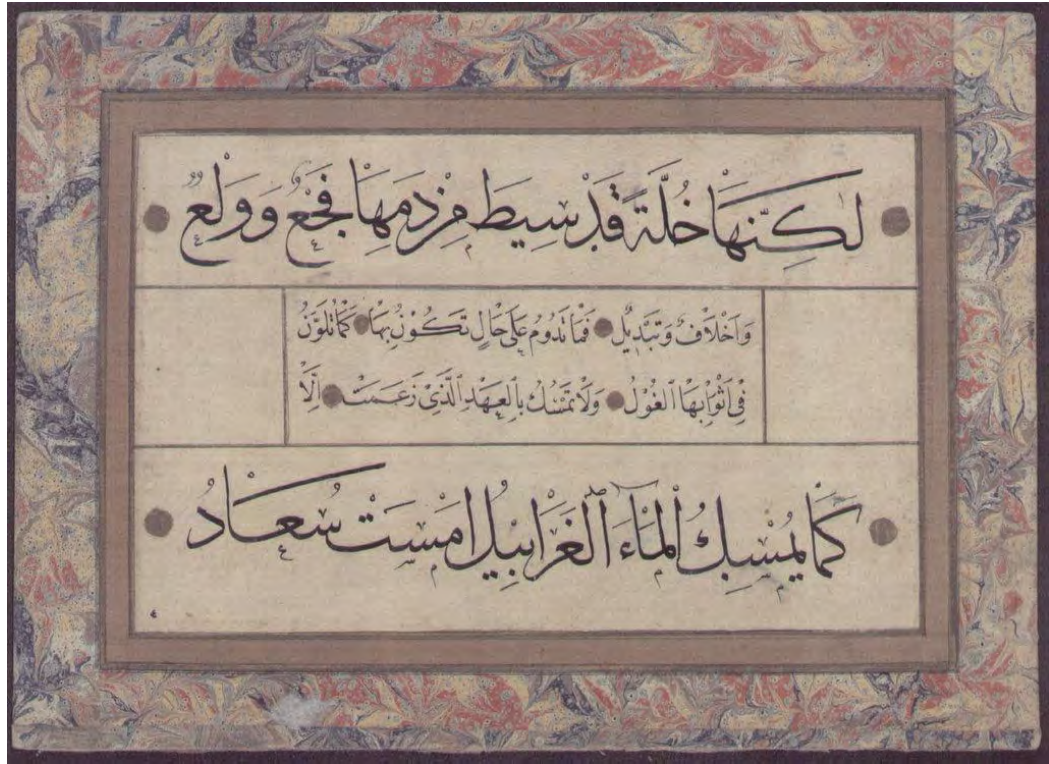 لٰكِنَّهَا خُلَّةٌ قَدْ سِيطَ مِنْ دَمِهَا فَجْعٌ وَوَلْعٌ
وَاَخْلَافٌ وَتَبْدِيلٌ فَمَا تَدُومُ عَلَى حَالٍ تَكُوْنُ بِهَا كَمَا تَلَوَّنُ
فِى اَثْوَابِهَا الْغُوْلُ وَلَا تَمَسُّكُ بِالْعَهْدِ الَّذِى زَعَمَتْ اِلَّا
كَمَا يُمْسِكُ الْمَاءَ الْغَرَابِيلُ اَمْسَتْ سُعَادُ
٤